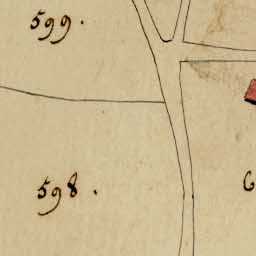 599.
598.
6